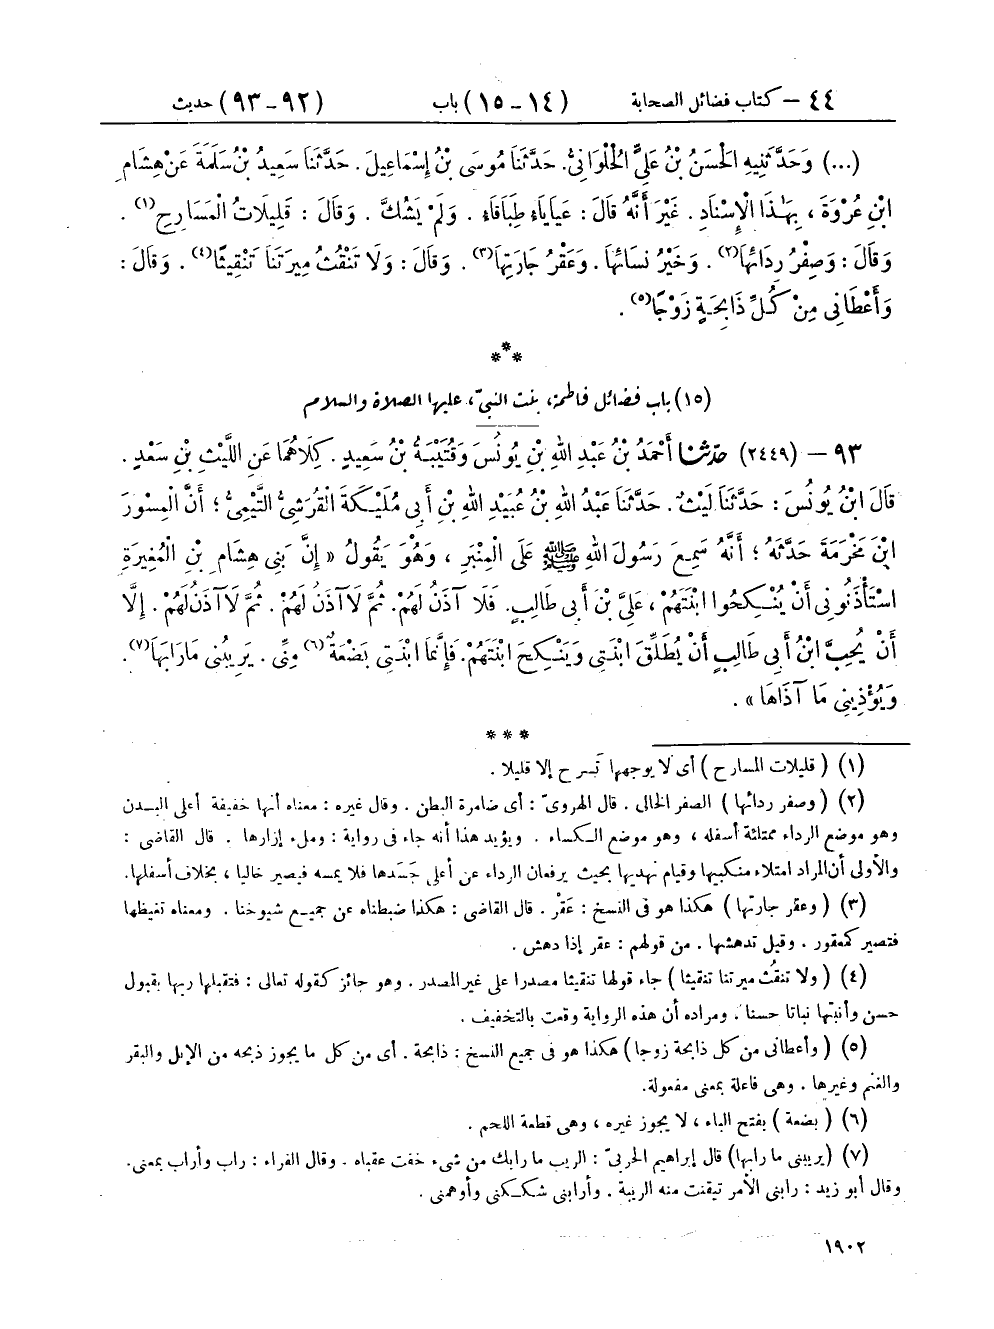 ٤٤ – كتاب فضائل الصحابة (١٤ – ١٥) باب (٩٢ – ٩٣) حديث
(...) وَحَدَّثَنِيهِ الْحَسَنُ بْنُ عَلِيٍّ الْحُلْوَانِيُّ. حَدَّثَنَا مُوسَى بْنُ إِسْمَاعِيلَ. حَدَّثَنَا سَعِيدُ بْنُ سَلَمَةَ عَنْ هِشَامِ
ابْنِ عُرْوَةَ، بِهَٰذَا الْإِسْنَادِ. غَيْرَ أَنَّهُ قَالَ: عَيَايَاءُ طَبَاقَاءُ. وَلَمْ يَشُكَّ. وَقَالَ: قَلِيلَاتُ الْمَسَارِحِ(١).
وَقَالَ: وَصِفْرُ رِدَائِهَا(٢). وَخَيْرُ نِسَائِهَا. وَعَقْرُ جَارَتِهَا(٣). وَقَالَ: وَلَا تَنْقُثُ مِيرَتَنَا تَنْقِيثًا(٤). وَقَالَ:
وَأَعْطَانِي مِنْ كُلِّ ذَابِحَةٍ زَوْجًا(٥).
***
(١٥) باب فضائل فاطمة، بنت النبيّ، عليها الصلاة والسلام
٩٣ – (٢٤٤٩) حَدَّثَنَا أَحْمَدُ بْنُ عَبْدِ اللهِ بْنِ يُونُسَ وَقُتَيْبَةُ بْنُ سَعِيدٍ. كِلَاهُمَا عَنِ اللَّيْثِ بْنِ سَعْدٍ.
قَالَ ابْنُ يُونُسَ: حَدَّثَنَا لَيْثٌ. حَدَّثَنَا عَبْدُ اللهِ بْنُ عُبَيْدِ اللهِ بْنِ أَبِي مُلَيْكَةَ الْقُرَشِيُّ التَّيْمِيُّ؛ أَنَّ الْمِسْوَرَ
ابْنَ مَخْرَمَةَ حَدَّثَهُ؛ أَنَّهُ سَمِعَ رَسُولَ اللهِ ﷺ عَلَى الْمِنْبَرِ، وَهُوَ يَقُولُ « إِنَّ بَنِي هِشَامِ بْنِ الْمُغِيرَةِ
اسْتَأْذَنُونِي أَنْ يُنْكِحُوا ابْنَتَهُمْ، عَلِيَّ بْنَ أَبِي طَالِبٍ. فَلَا آذَنُ لَهُمْ. ثُمَّ لَا آذَنُ لَهُمْ. ثُمَّ لَا آذَنُ لَهُمْ. إِلَّا
أَنْ يُحِبَّ ابْنُ أَبِي طَالِبٍ أَنْ يُطَلِّقَ ابْنَتِي وَيَنْكِحَ ابْنَتَهُمْ. فَإِنَّمَا ابْنَتِي بَضْعَةٌ(٦) مِنِّي. يَرِيبُنِي مَا رَابَهَا(٧).
وَيُؤْذِينِي مَا آذَاهَا ».
***
(١) ( قليلات المسارح ) أى لا يوجهها تسرح إلا قليلا.
(٢) ( وصفر ردائها ) الصفر الخالى. قال الهروىّ: أى ضامرة البطن. وقال غيره: معناه أنها خفيفة أعلى البدن
وهو موضع الرداء ممتلئة أسفله، وهو موضع الكساء. ويؤيد هذا أنه جاء فى رواية: وملء إزارها. قال القاضى:
والأولى أن المراد امتلاء منكبيها وقيام نهديها بحيث يرفعان الرداء عن أعلى جَسَدها فلا يمسه فيصير خاليا، بخلاف أسفلها.
(٣) ( وعقر جارتها ) هكذا هو فى النسخ: عَقْر. قال القاضى: هكذا ضبطناه عن جميع شيوخنا. ومعناه تغيظها
فتصير كمعقور. وقيل تدهشها. من قولهم: عقر إذا دهش.
(٤) ( ولا تنقُث ميرتنا تنقيثا ) جاء قولها تنقيثا مصدرا على غير المصدر. وهو جائز كقوله تعالى: فتقبلها ربها بقبول
حسن وأنبتها نباتا حسنا. ومراده أن هذه الرواية وقعت بالتخفيف.
(٥) ( وأعطانى من كل ذابحة زوجا ) هكذا هو فى جميع النسخ: ذابحة. أى من كل ما يجوز ذبحه من الإبل والبقر
والغنم وغيرها. وهى فاعلة بمعنى مفعولة.
(٦) ( بضعة ) بفتح الباء، لا يجوز غيره، وهى قطعة اللحم.
(٧) ( يريبنى ما رابها ) قال إبراهيم الحربىّ: الريب ما رابك من شىء خفت عقباه. وقال الفراء: راب وأراب بمعنى.
وقال أبو زيد: رابنى الأمر تيقنت منه الريبة. وأرابنى شككنى وأوهمنى.
١٩٠٢